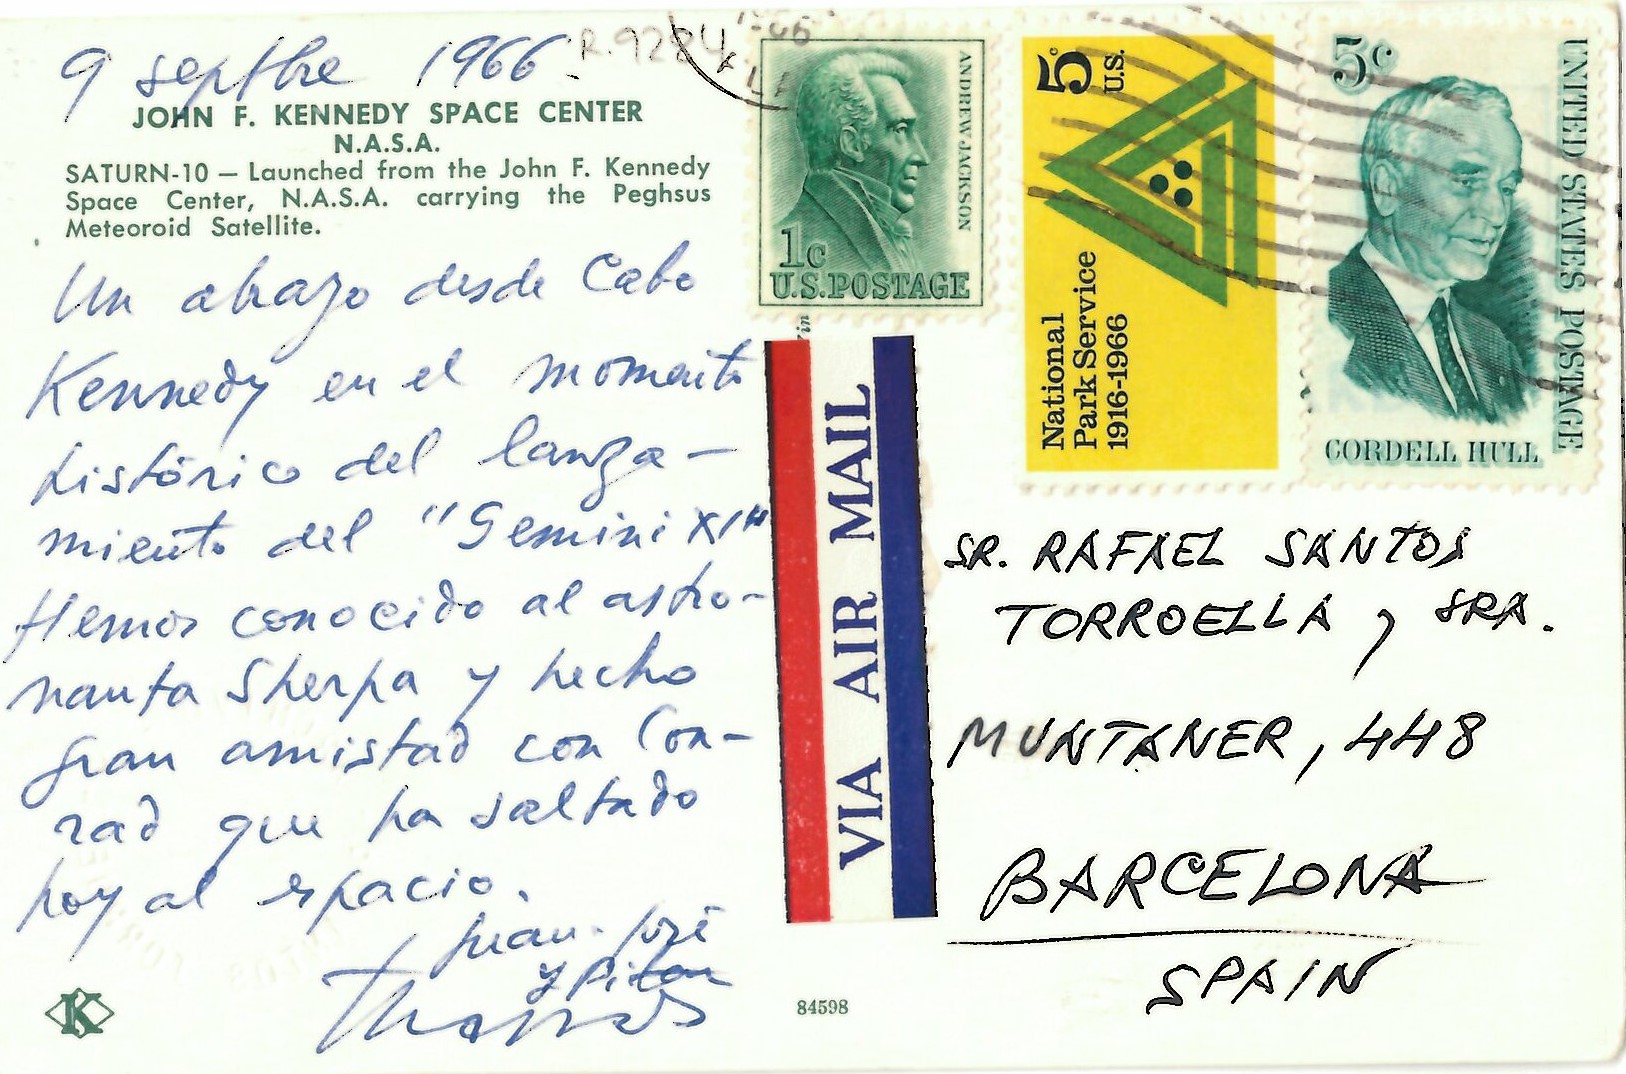 9 septbre 1966
R.9284
JOHN F. KENNEDY SPACE CENTER
N.A.S.A.
SATURN-10 — Launched from the John F. Kennedy
Space Center, N.A.S.A. carrying the Peghsus
Meteoroid Satellite.
Un abrazo desde Cabo
Kennedy en el momento
histórico del lanza—
miento del "Gemini XI"
Hemos conocido al astro—
nauta Sherpa y hecho
gran amistad con Con—
rad que ha saltado
hoy al espacio.
Juan-José
y Pilar
K
84598
ANDREW JACKSON
1c
U.S.POSTAGE
5c
U.S.
National
Park Service
1916-1966
5c
UNITED STATES POSTAGE
CORDELL HULL
VIA AIR MAIL
SR. RAFAEL SANTOS
TORROELLA y SRA.
MUNTANER, 448
BARCELONA
SPAIN